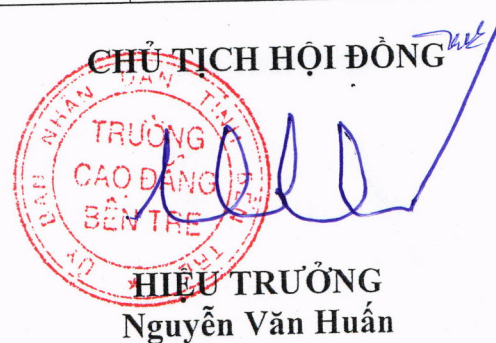 CHỦ TỊCH HỘI ĐỒNG
ỦY BAN NHÂN DÂN TỈNH BẾN TRE
TRƯỜNG
CAO ĐẲNG
BẾN TRE
HIỆU TRƯỞNG
Nguyễn Văn Huấn